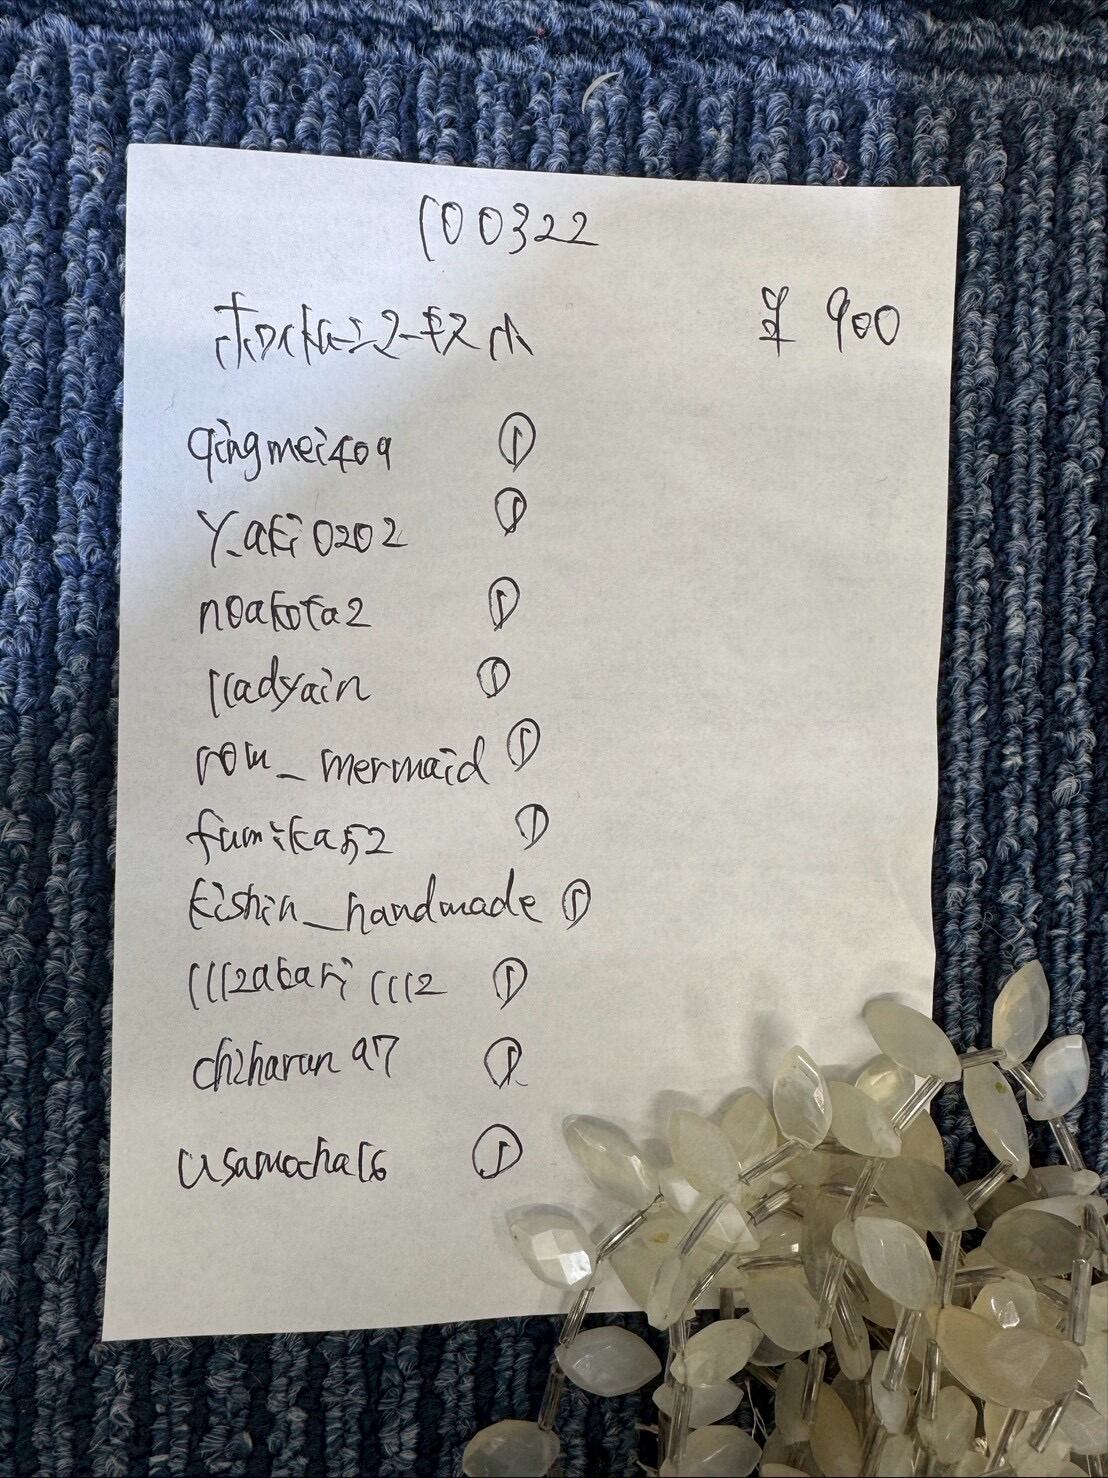 100322
ホワイトムーンストーン 小 ¥ 900
qingmei409 ①
y_aki0202 ①
noakota2 ①
11adyain ①
rom_mermaid ①
fumika52 ①
kishin_handmade ①
1112akari1112 ①
chiharun97 ①
usamocha16 ①